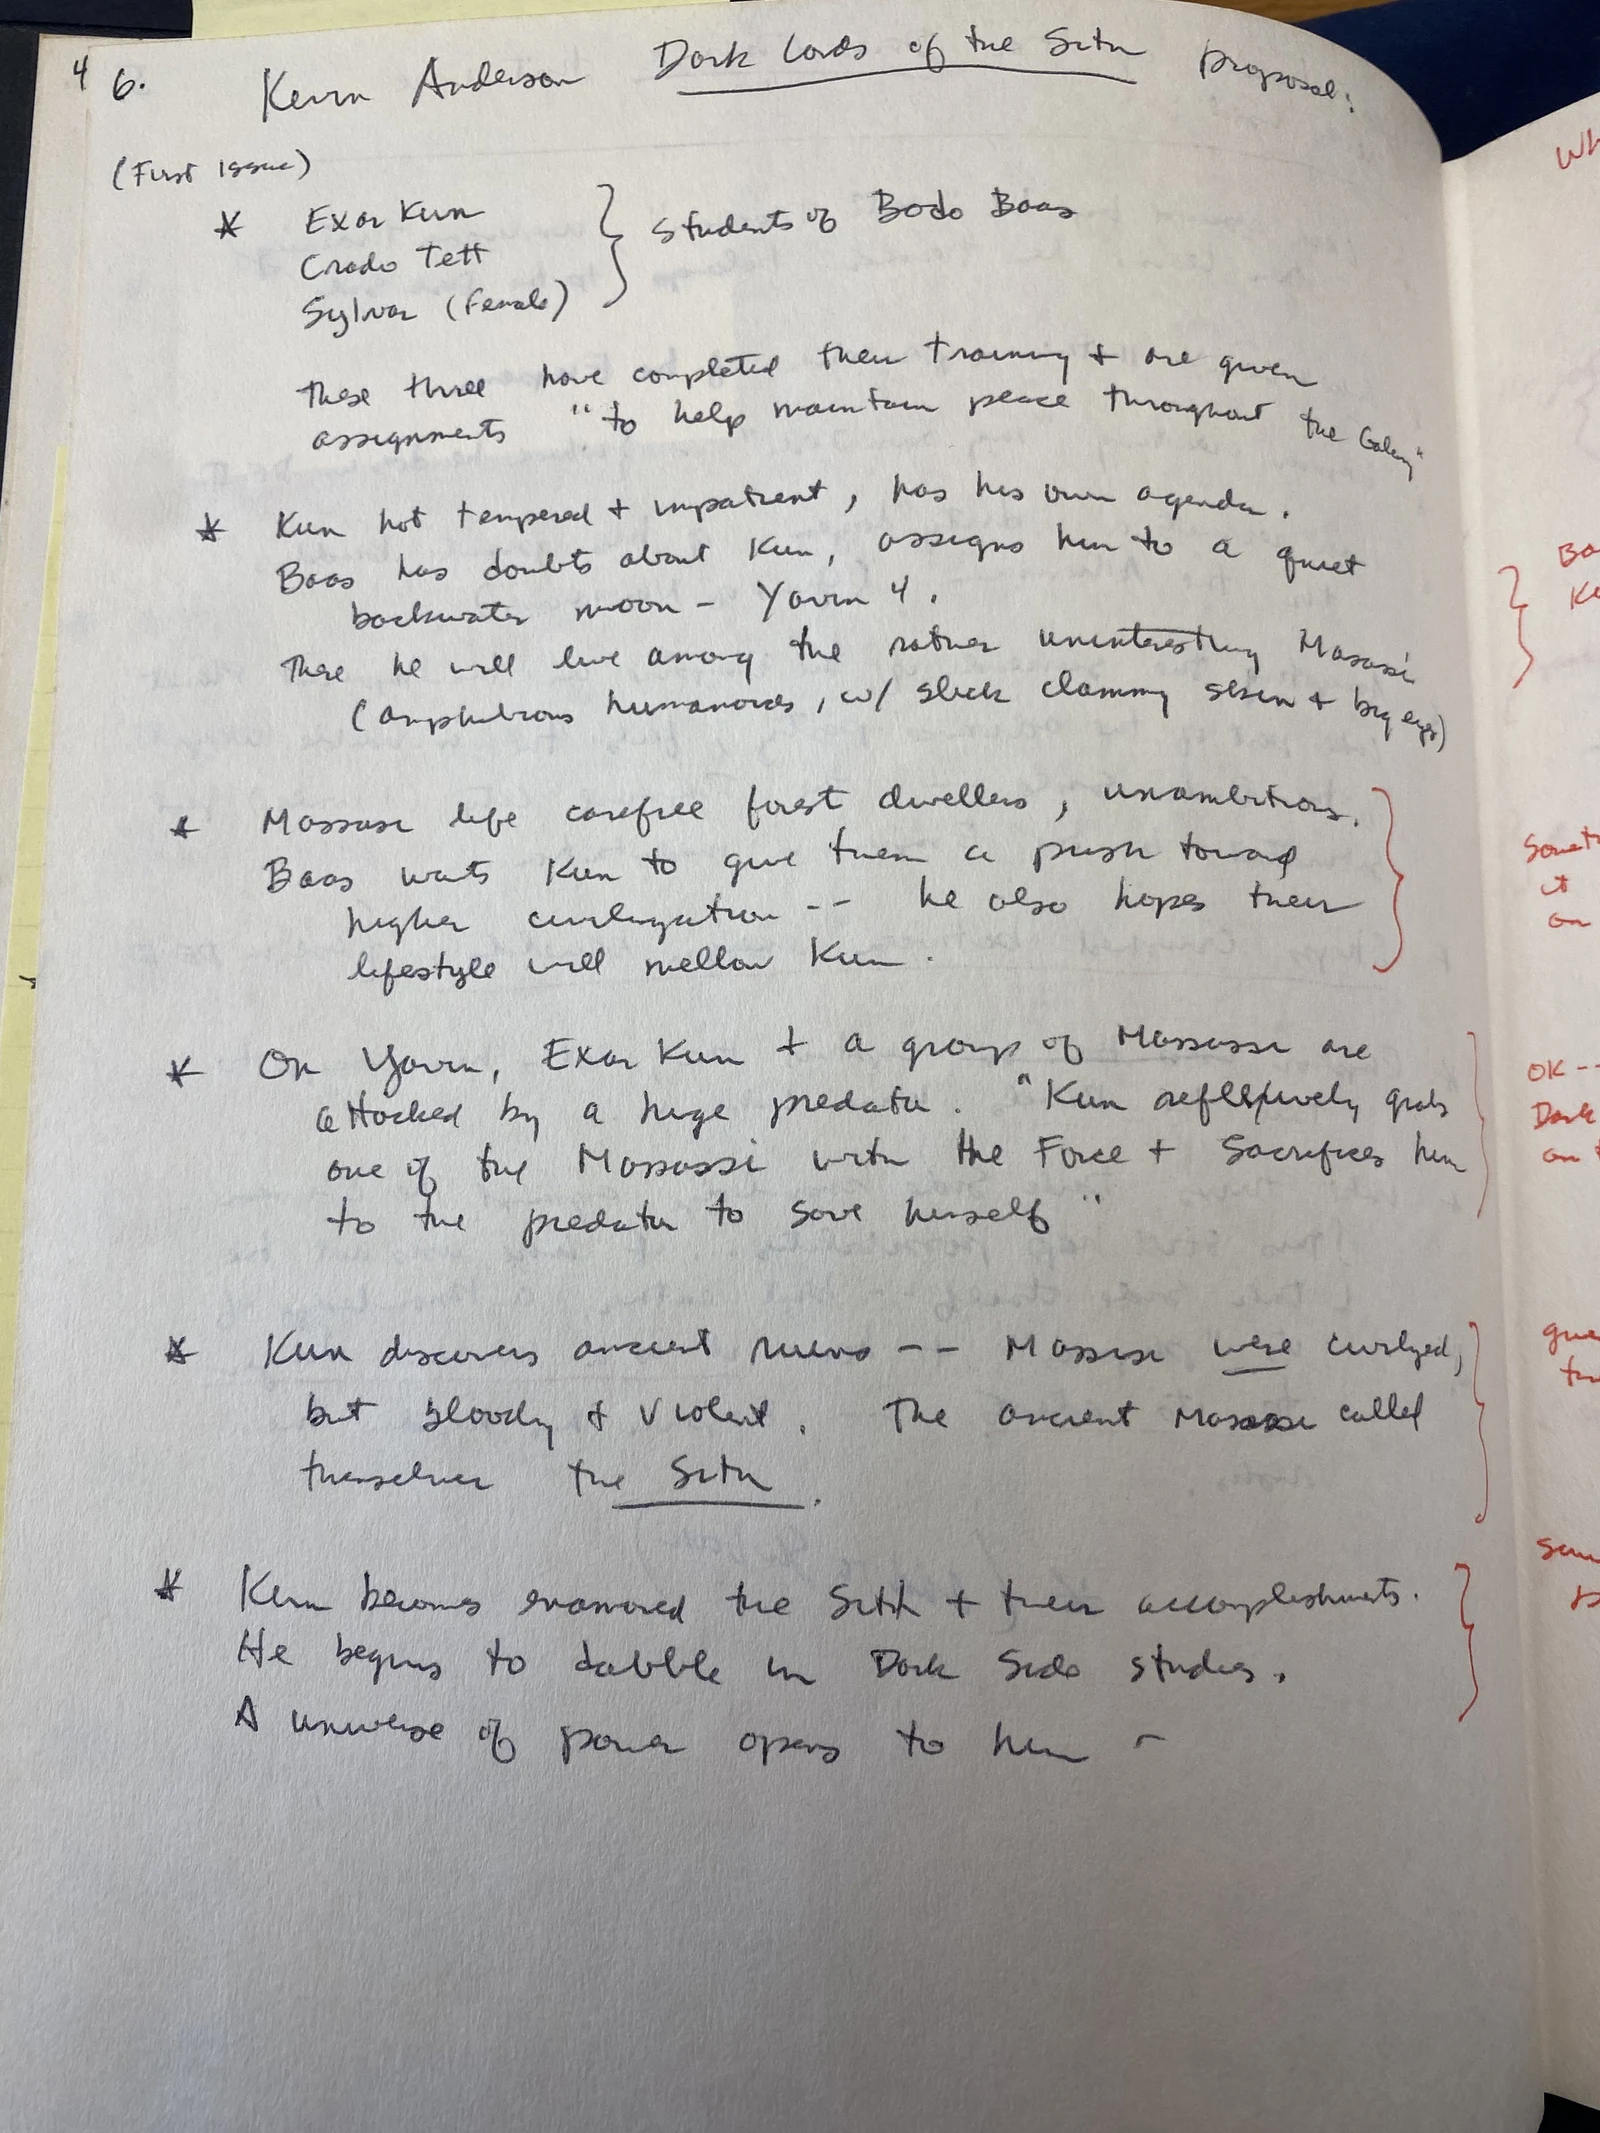 4 6. Kevin Anderson Dark Lords of the Sith proposal:
(First Issue)
* Exar Kun
Crado Tett
Sylvar (Female)
Students of Bodo Baas
These three have completed their training + are given
assignments "to help maintain peace throughout the Galaxy"
* Kun hot tempered + impatient, has his own agenda.
Baas has doubts about Kun, assigns him to a quiet
backwater moon - Yavin 4.
There he will live among the rather uninteresting Massassi
(amphibious humanoids, w/ slick clammy skin + big eyes)
* Massassi life carefree forest dwellers, unambitious.
Baas wants Kun to give them a push toward
higher civilization -- he also hopes their
lifestyle will mellow Kun.
* On Yavin, Exar Kun + a group of Massassi are
attacked by a huge predator. "Kun reflexively grabs
one of the Massassi with the Force + Sacrifices him
to the predator to save himself"
* Kun discovers ancient ruins -- Massassi were civilized,
but bloody + violent. The ancient Massassi called
themselves the Sith.
* Kun becomes enamored the Sith + their accomplishments.
He begins to dabble in Dark Side studies.
A universe of power opens to him -
it
on
OK --
Dark